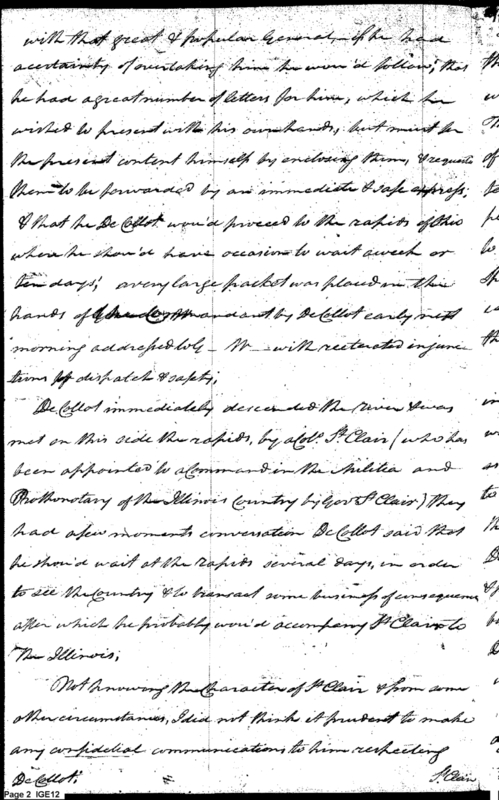 with that great & popular General,– if he had
a certainty of overtaking him he wou'd follow; that
he had a great number of letters for him, which he
wished to present with his own hands, but must for
the present content himself by enclosing them, & requests
them to be forwarded by an immediate & safe express;
& that he De Collot wou'd proceed to the rapids of Ohio
where he shou'd have occasion to wait a week or
ten days; a very large packet was placed in the
hands of the Commandant by De Collot early next
morning addressed to G– W– with reiterated injunc
tions of dispatch & safety;
De Collot immediately descended the river & was
met on this side the rapids, by a Col.º St. Clair (who has
been appointed to a Command in the Militia and
Prothonotary of the Illinois Country by Gov.r St. Clair) they
had a few moments conversation De Collot said that
he shou'd wait at the rapids several days, in order
to see the Country & to transact some business of consequence
after which he probably wou'd accompany St. Clair to
The Illinois;
Not knowing the Character of St. Clair & from some
other circumstances, I did not think it prudent to make
any confidetial communications to him respecting
De Collot;
St. Clair
Page 2 IGE12